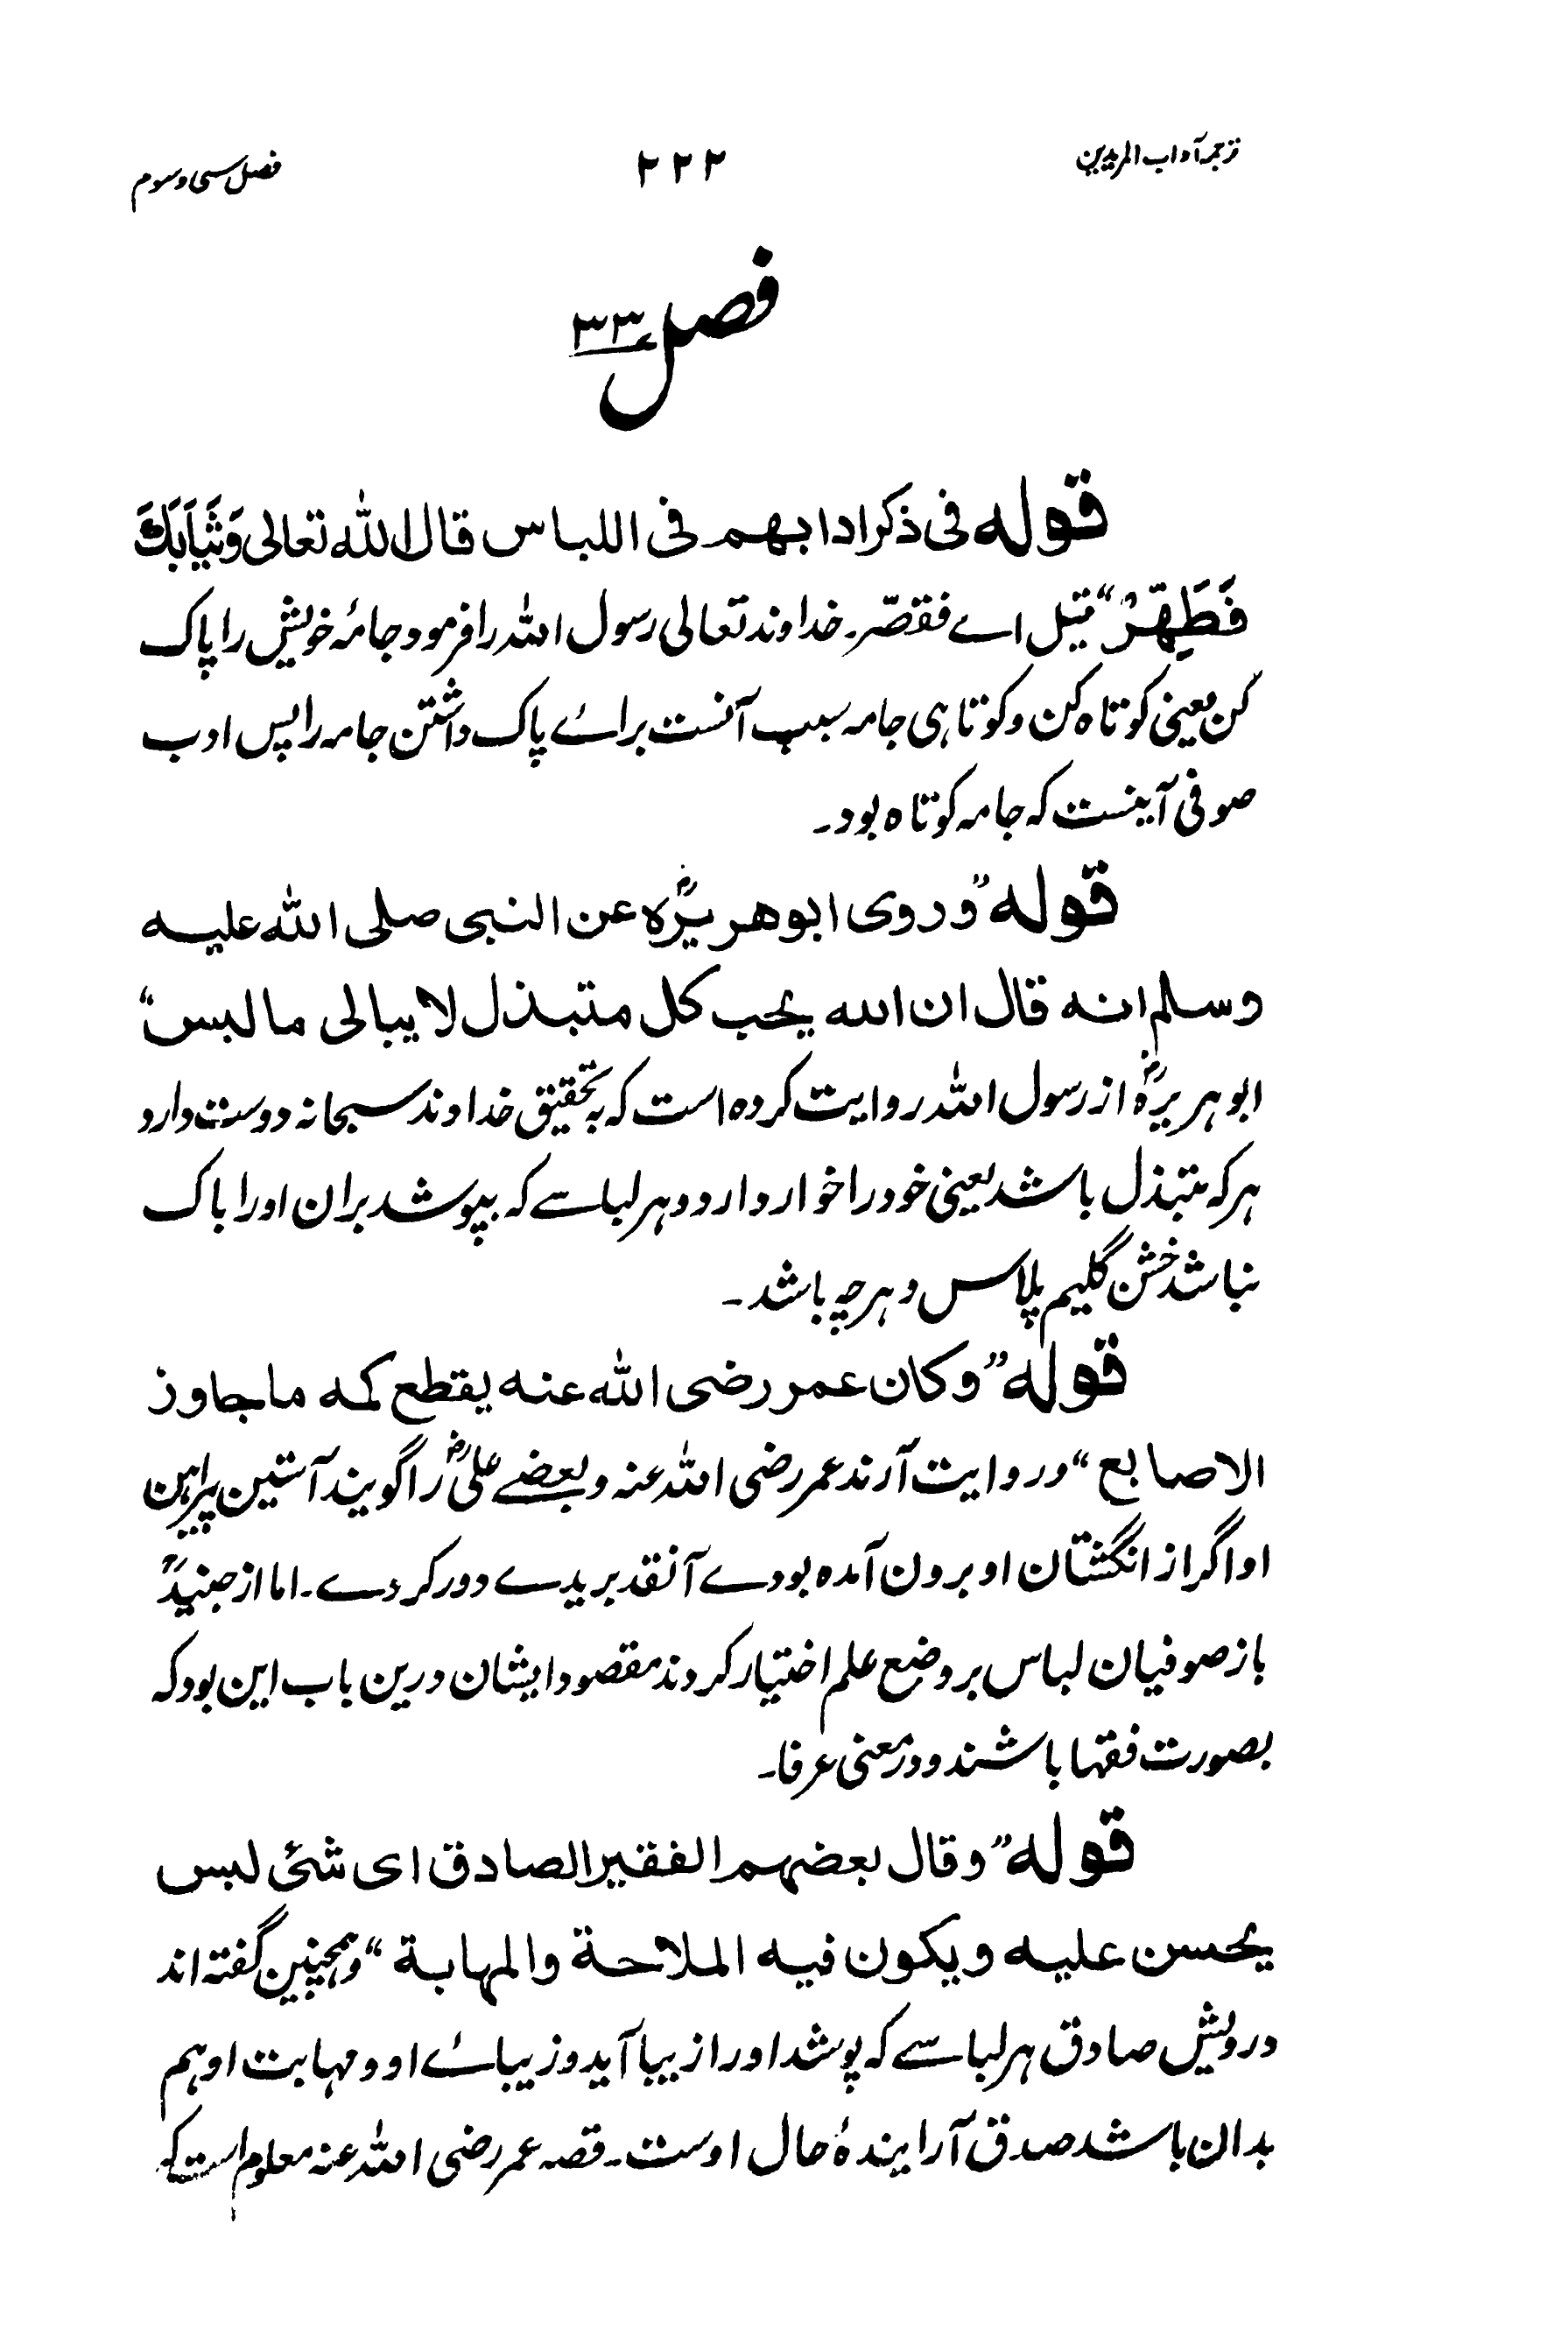 ترجمہ آداب المریدین
۲۲۲
فصل سی و سوم
فصل ۳۳
قوله فی ذکر ادابهم فی اللباس قال الله تعالی وَثِیَابَکَ
فَطَهِّرْ“ قیل اے فقصّر۔ خداوند تعالی رسول الله را فرمود جامۂ خویش را پاک
کن یعنی کوتاه کن و کوتاہی جامہ سبب آنست براے پاک داشتن جامہ را پس ادب
صوفی آنست کہ جامہ کوتاه بود۔
قوله ”و روی ابو هریرہؓ عن النبی صلی الله علیه
وسلم انه قال ان الله یحب کل متبذل لا یبالی ما لبس“
ابو ہریرہؓ از رسول الله روایت کرده است کہ بہ تحقیق خداوند سبحانہ دوست دارد
ہر کہ متبذل باشد یعنی خود را خوار دارد و ہر لباسے کہ بپوشد بران اورا باک
نباشد خشن گلیم پلاس و ہرچہ باشد۔
قوله ”و کان عمر رضی الله عنه یقطع کمه ما جاوز
الاصابع“ و روایت آرند عمر رضی الله عنہ و بعضے علیؓ را گویند آستین پیراہن
او اگر از انگشتان او برون آمده بودے آنقدر بریدے دور کردے۔ اما از جنیدؒ
باز صوفیان لباس بر وضع علم اختیار کردند مقصود ایشان درین باب این بود کہ
بصورت فقہا باشند و در معنی عرفا۔
قوله ”و قال بعضهم الفقیر الصادق ای شئ لبس
یحسن علیه و یکون فیه الملاحة والمهابة“ و ہمچنین گفتہ اند
درویش صادق ہر لباسے کہ پوشد اورا زیبا آید و زیباۓ او و مہابت او ہم
بدان باشد صدق آرایندۂ حال اوست۔ قصہ عمر رضی الله عنہ معلوم است کہ